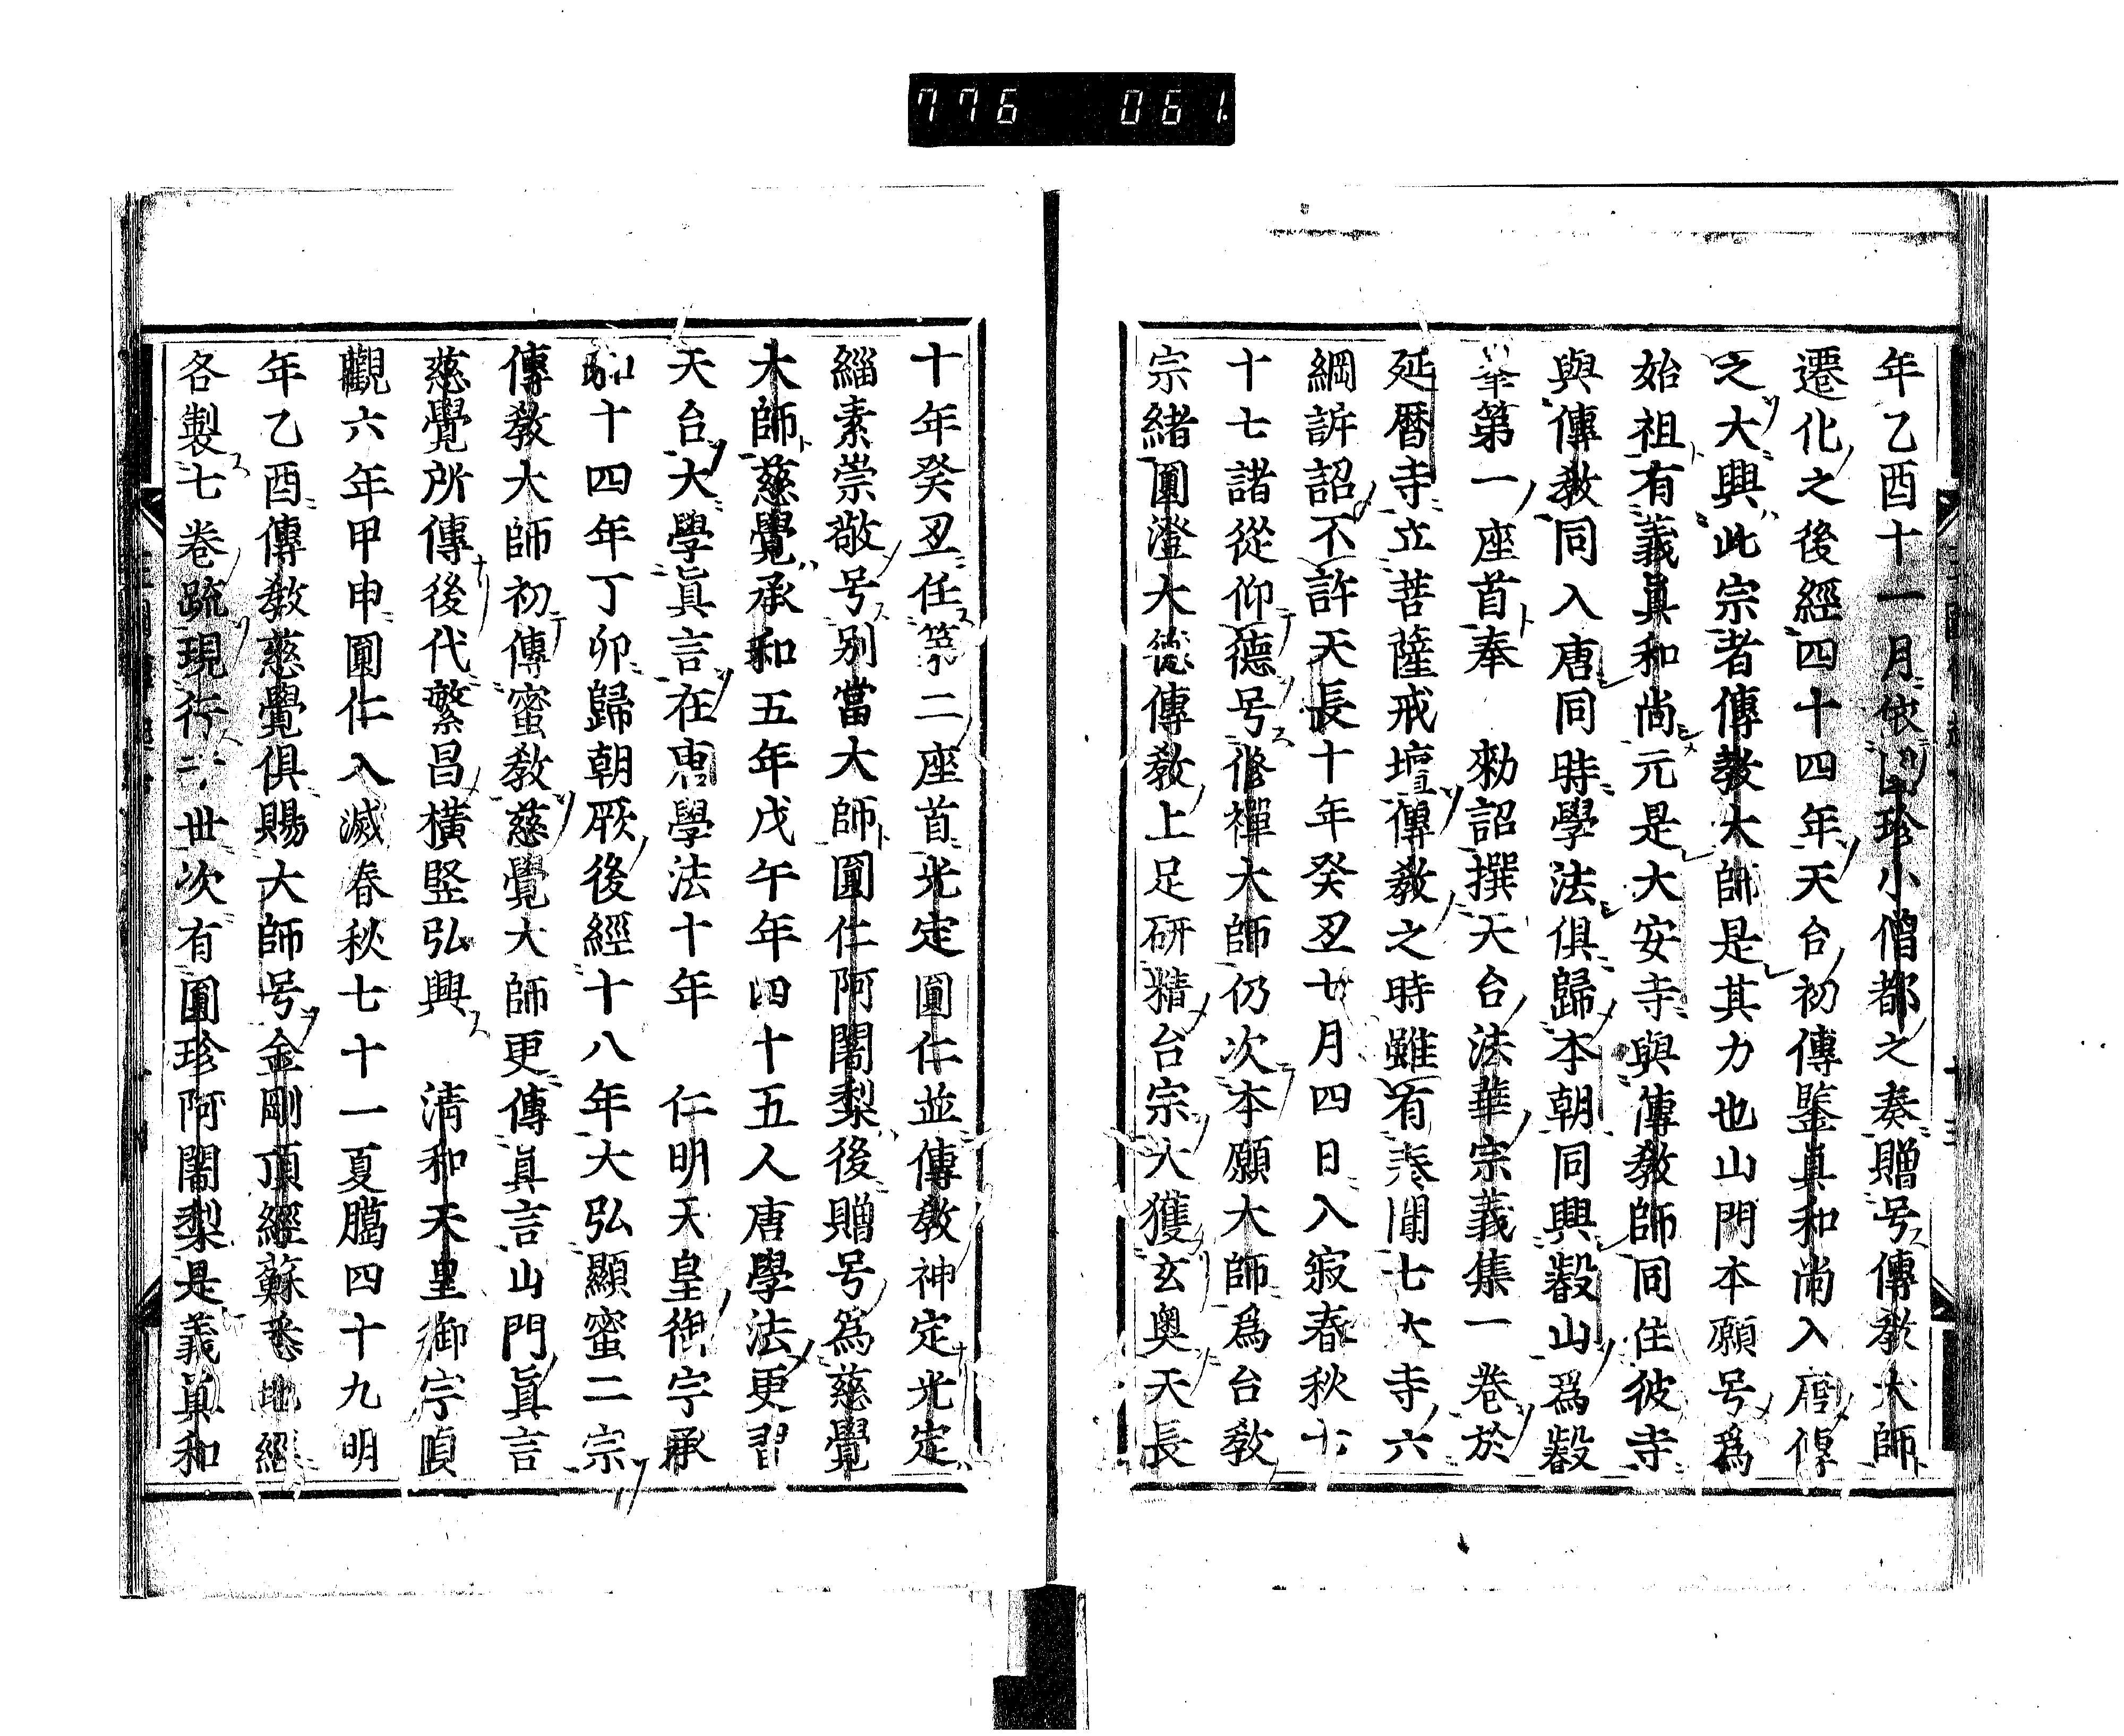 776 061
年乙酉十一月依圓珍小僧都之奏贈号傳敎大師
遷化之後經四十四年天台初傳鑒眞和尚入唐傳
之大興此宗者傳敎大師是其力也山門本願号爲
始祖有義眞和尚元是大安寺與傳敎師同住彼寺
與傳敎同入唐同時學法俱歸本朝同興叡山爲叡
峯第一座首奉 勑詔撰天台法華宗義集一卷於
延曆寺立菩薩戒壇傳敎之時雖有 聞七大寺六
綱訴詔不許天長十年癸丑七月四日入寂春秋七
十七諸從仰德号修禪大師仍次本願大師爲台敎
宗緒圓澄大德傳敎上足硏精台宗大獲玄奧天長
十年癸丑任第二座首光定圓仁並傳敎神定光定
緇素崇敬号別當大師圓仁阿闍梨後贈号爲慈覺
大師慈覺承和五年戊午年四十五入唐學法更習
天台大學眞言在唐學法十年 仁明天皇御宇承
和十四年丁卯歸朝厥後經十八年大弘顯蜜二宗
傳敎大師初傳蜜敎慈覺大師更傳眞言山門眞言
慈覺所傳後代繁昌橫竪弘興 淸和天皇御宇貞
觀六年甲申圓仁入滅春秋七十一夏臈四十九明
年乙酉傳敎慈覺俱賜大師号金剛頂經蘇悉地經
各製七卷疏現行于世次有圓珍阿闍梨是義眞和